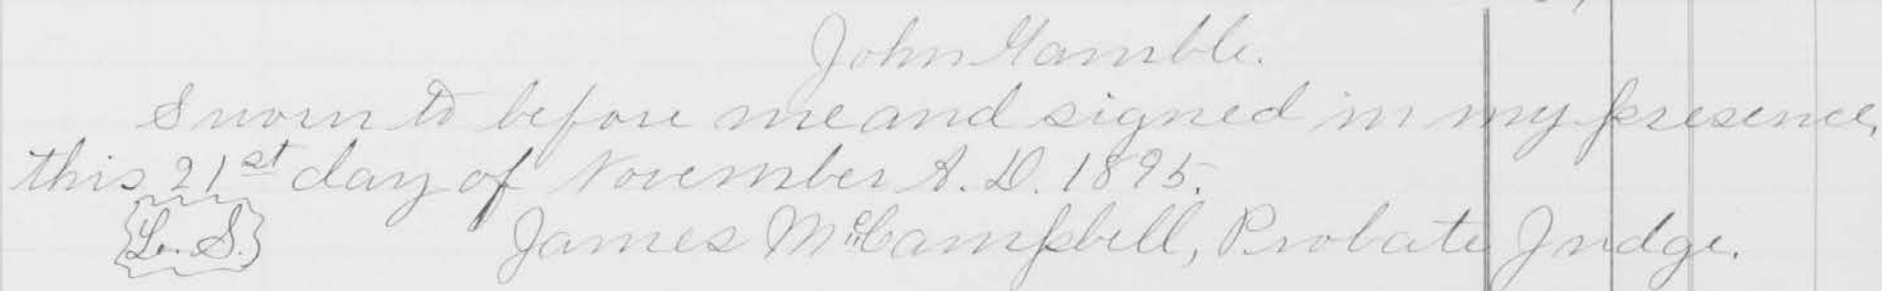 John Gamble.
Sworn to before me and signed in my presence,
this 21st day of November A. D. 1895.
L. S. James McCampbell, Probate Judge.